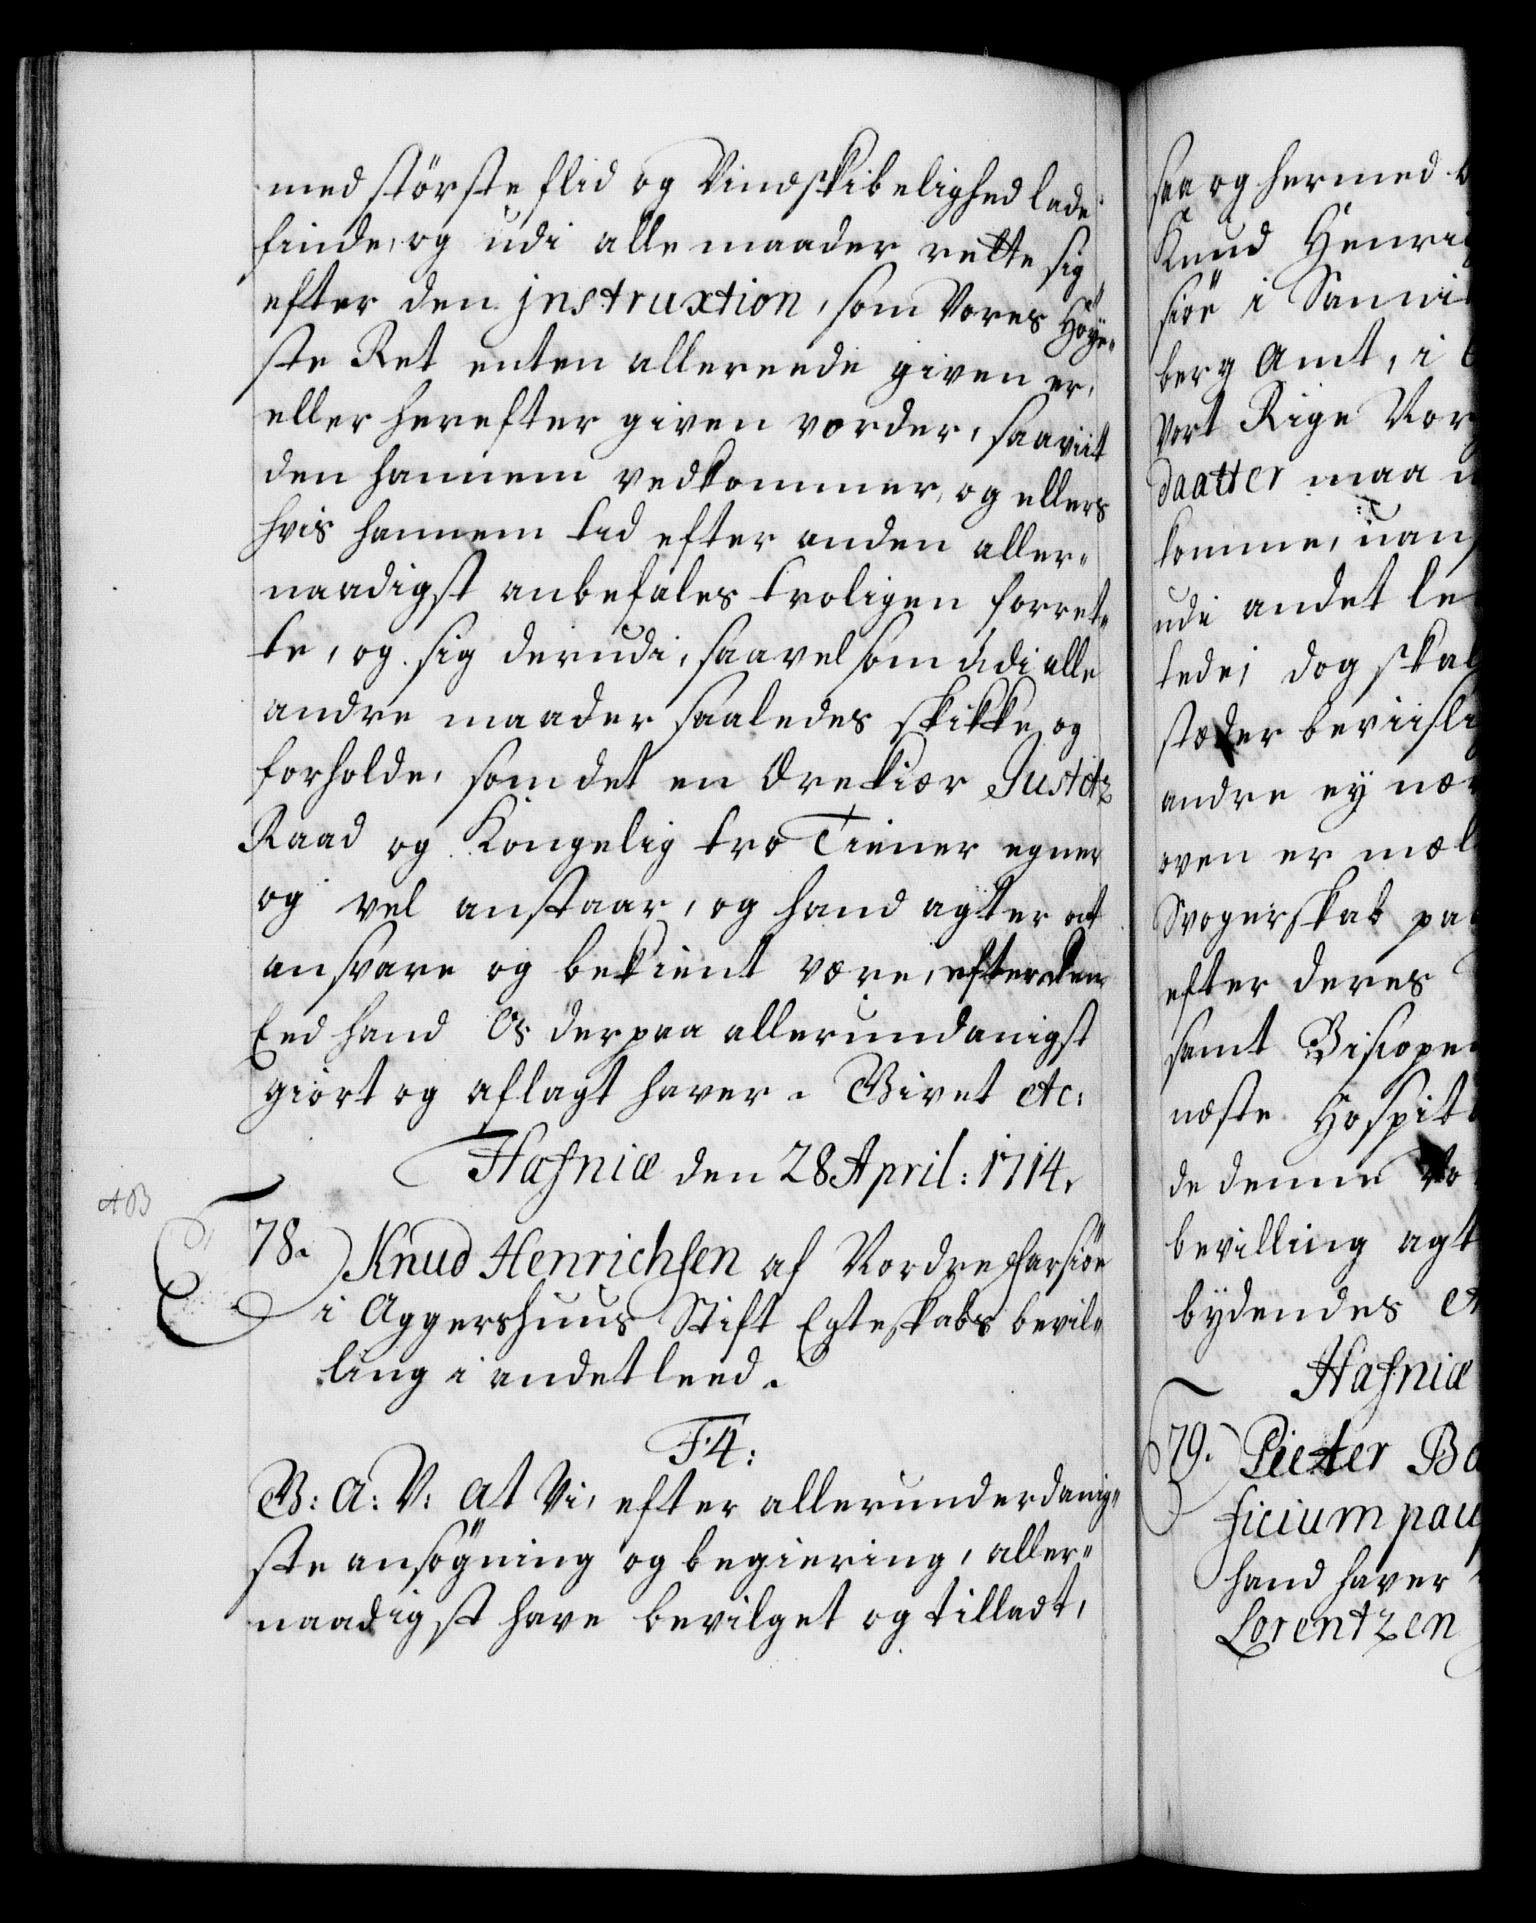 med største flid og Vindskibelighed lade
finde, og udi alle maader rette sig
efter den jnstruxtion, som Vores Høye„
ste Ret enten allereede given er,
eller herefter given vorder, saaviit
den hannem vedkommer, og ellers
hvis hannem tid efter anden aller„
naadigst anbefales troligen forret„
te, og sig derudi, saavel som udi alle
andre maader saaledes skikke og
forholde, som det en Ærekiær Justitz
Raad og Kongelig tro Tiener egner
og vel anstaar, og hand agter at
ansvare og bekient være, efter den
Eed hand Os derpaa allerundanigst
giort og aflagt haver. Givet etc:
Hafniæ den 28 April: 1714.
AB
78. Knud Henrichsen af Nordre Farsiöe
i Aggershuus Stift Egteskabs bevil„
ling i andet leed.
F.4:
G: A: V: At Vi, efter allerunderdanig„
ste ansøgning og begiering, aller„
naadigst have bevilget og tilladt,
saa og hermed
Knud Henri
siöe i
berg Amt, i
vort Rige Nor
daatter maa
komme, uan
udi andet le
tede; dog skal
stæder beviisli
andre ey nær
oven er mæl
Svogerskab paa
efter deres
samt Biscope
næste Hospit
de denne Vo
bevilling agt
bydendes
Hafniæ
79. Pieter Bo
ficium pau
hand haver
Lorentzen